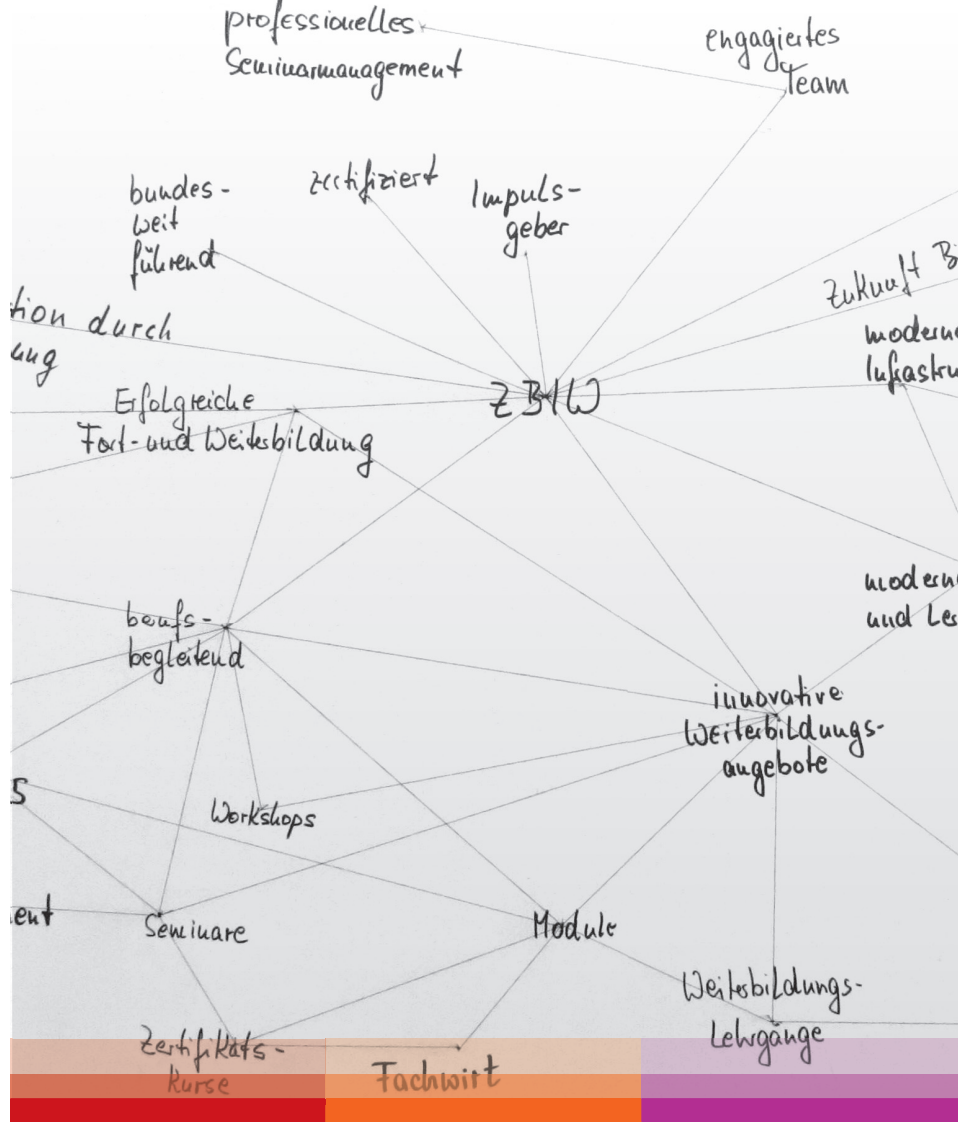 professionelles
Seminarmanagement
engagiertes
Team
bundes-
weit
führend
zertifiziert
Impuls-
geber
Zukunft B
tion durch
ung
moderne
Infrastru
Erfolgreiche
Fort- und Weiterbildung
ZBIW
berufs-
begleitend
moderne
und Les
innovative
Weiterbildungs-
angebote
s
Workshops
ent
Seminare
Module
Weiterbildungs-
Lehrgänge
Zertifikats-
kurse
Fachwirt